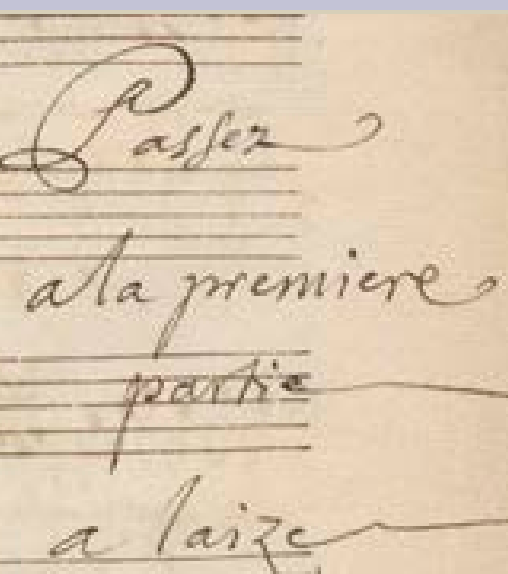 Passez
a la premiere
partie
a laize